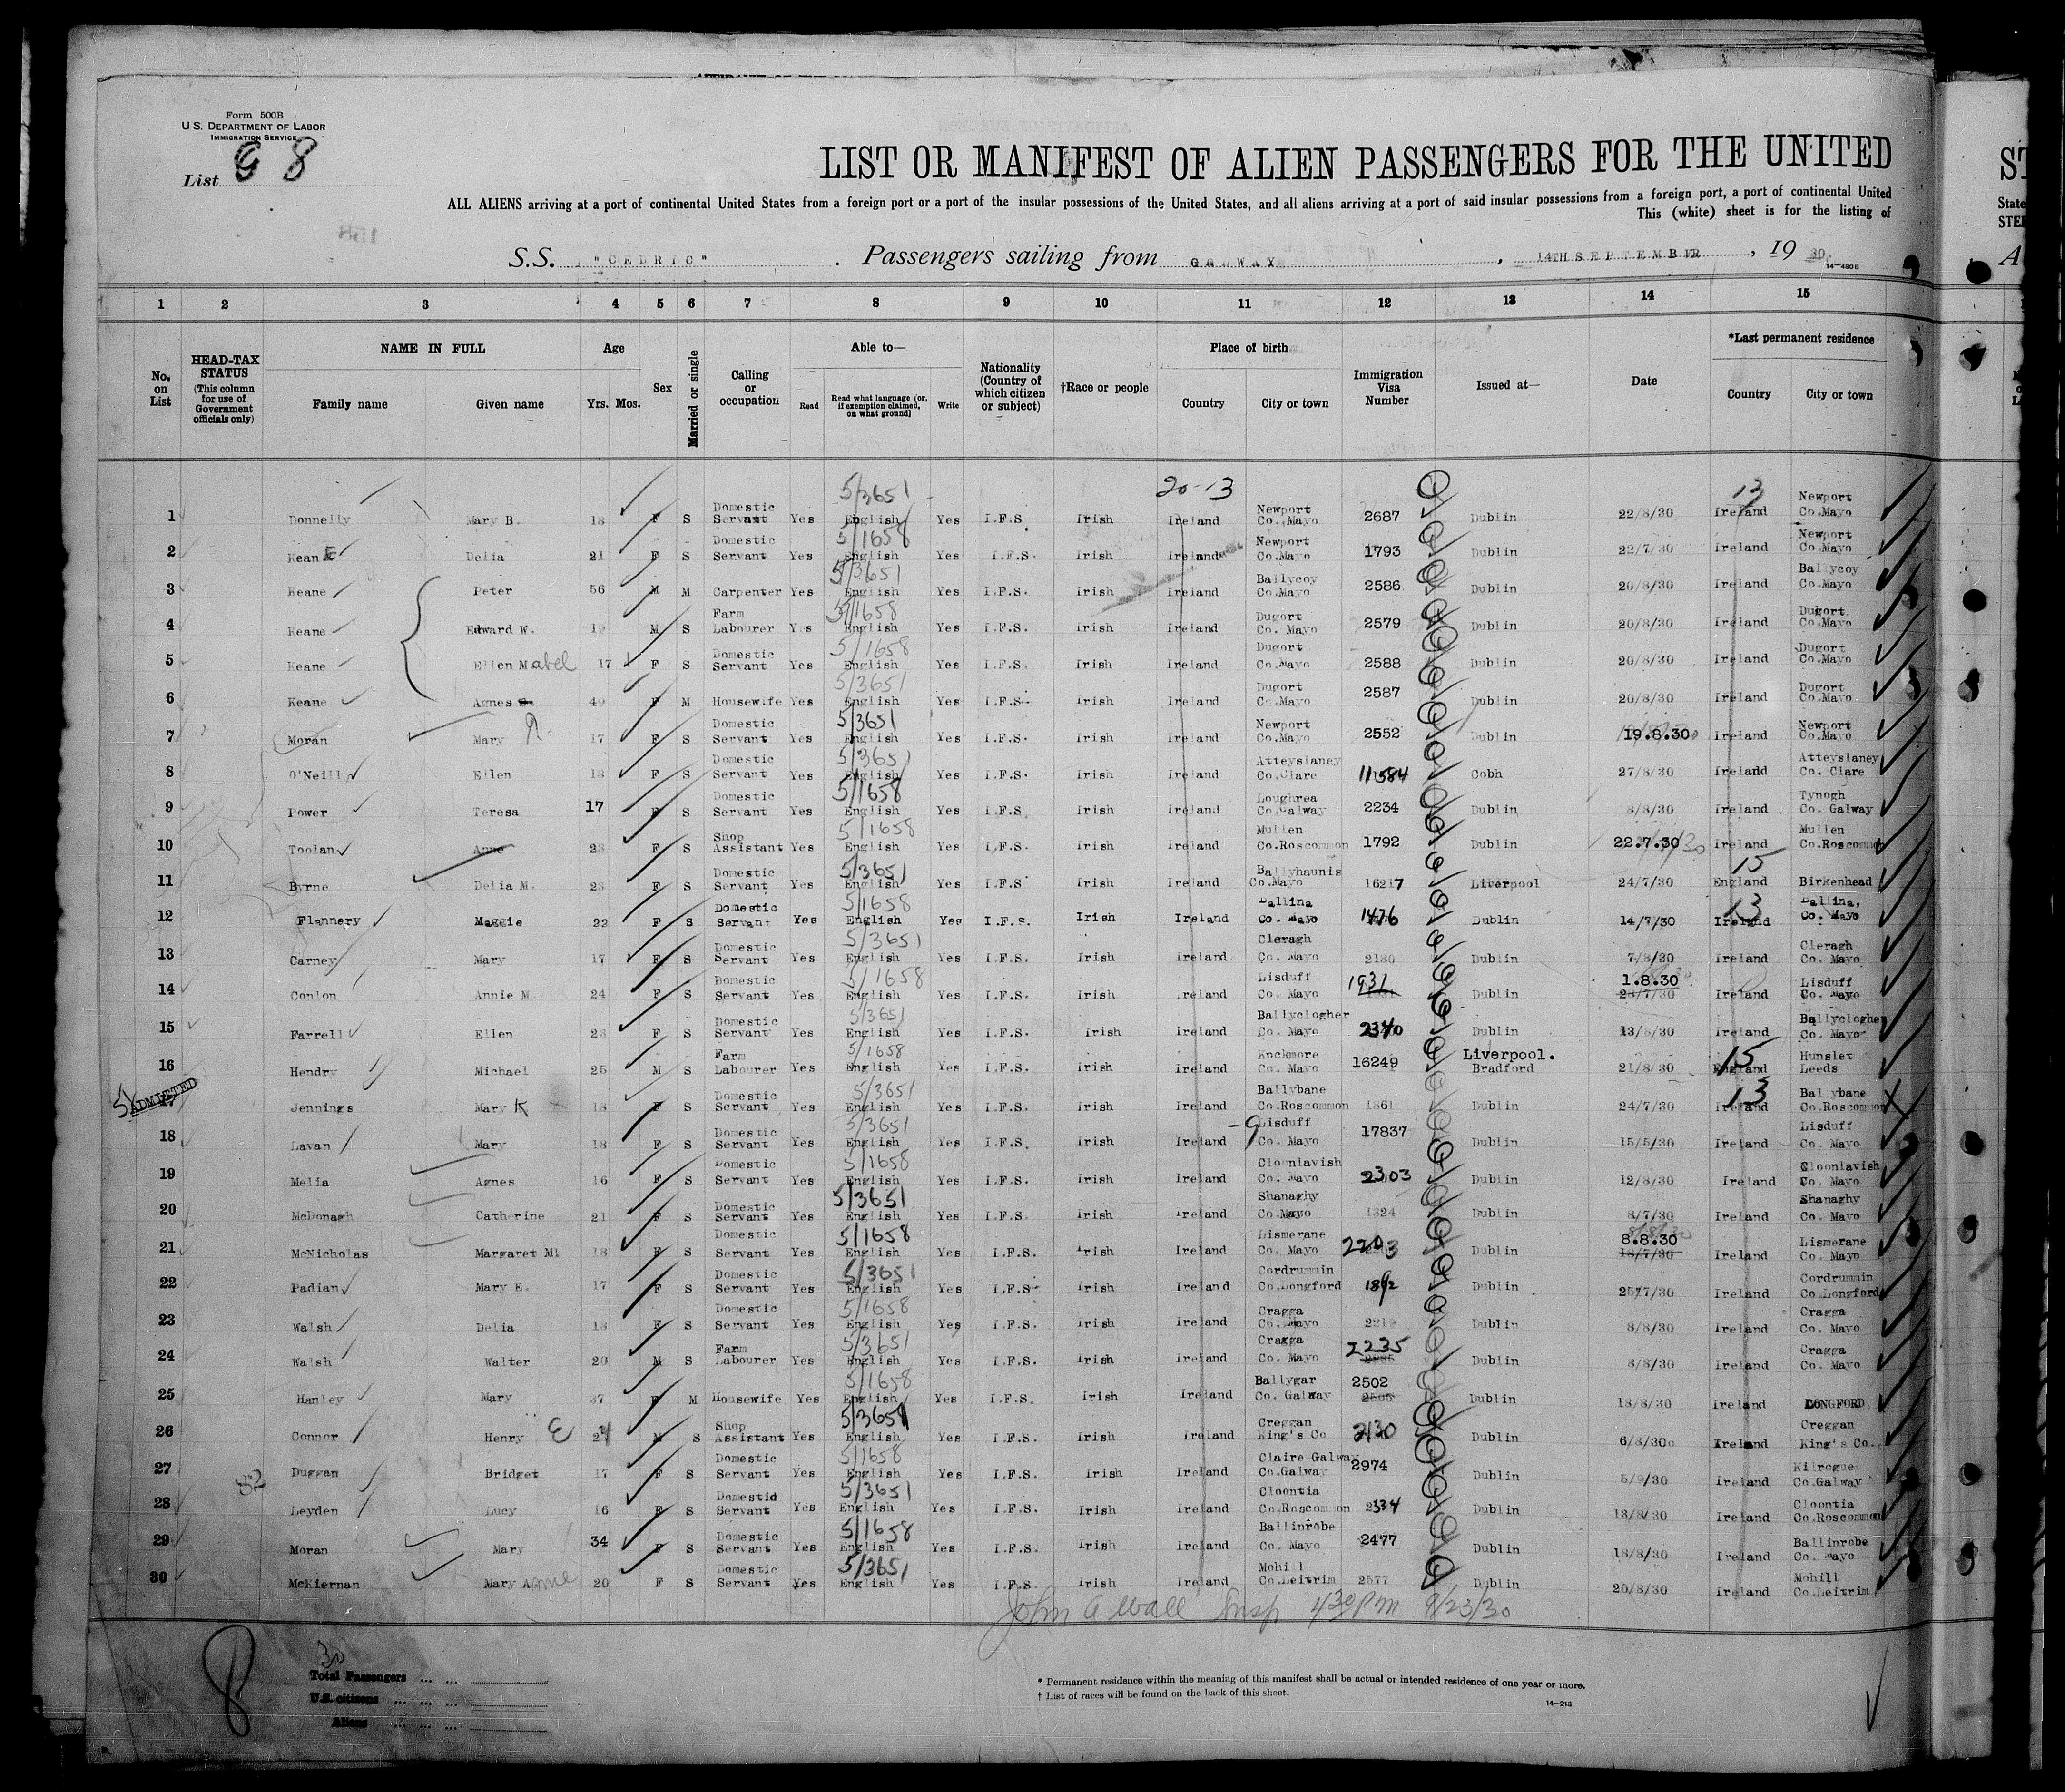 Form 500B
U. S. DEPARTMENT OF LABOR
IMMIGRATION SERVICE
List 8
LIST OR MANIFEST OF ALIEN PASSENGERS FOR THE UNITED
ALL ALIENS arriving at a port of continental United States from a foreign port or a port of the insular possessions of the United States, and all aliens arriving at a port of said insular possessions from a foreign port, a port of continental United
This (white) sheet is for the listing of
S.S. "CEDRIC" . Passengers sailing from GALWAY , 14TH SEPTEMBER , 19 30.
14-4806
1 2 3 4 5 6 7 8 9 10 11 12 13 14 15
No. on List
HEAD-TAX STATUS (This column for use of Government officials only)
NAME IN FULL Family name Given name
Age Yrs. Mos.
Sex
Married or single
Calling or occupation
Able to— Read Read what language (or, if exemption claimed, on what ground) Write
Nationality (Country of which citizen or subject)
†Race or people
Place of birth Country City or town
Immigration Visa Number
Issued at—
Date
*Last permanent residence Country City or town
20-13 13
1 Donnelly Mary B. 18 F S Domestic Servant Yes 5/3651 English Yes I.F.S. Irish Ireland Newport Co. Mayo 2687 Dublin 22/8/30 Ireland Newport Co.Mayo
2 KeanE Delia 21 F S Domestic Servant Yes 5/1658 English Yes I.F.S. Irish Ireland Newport Co.Mayo 1793 Dublin 22/7/30 Ireland Newport Co.Mayo
3 Keane Peter 56 M M Carpenter Yes 5/3651 English Yes I.F.S. Irish Ireland Ballycoy Co.Mayo 2586 Dublin 20/8/30 Ireland Ballycoy Co.Mayo
4 Keane Edward W. 19 M S Farm Labourer Yes 5/1658 English Yes I.F.S. Irish Ireland Dugort Co. Mayo 2579 Dublin 20/8/30 Ireland Dugort Co.Mayo
5 Keane Ellen Mabel 17 F S Domestic Servant Yes 5/1658 English Yes I.F.S. Irish Ireland Dugort Co.Mayo 2588 Dublin 20/8/30 Ireland Dugort Co.Mayo
6 Keane Agnes 49 F M Housewife Yes 5/3651 English Yes I.F.S. Irish Ireland Dugort Co.Mayo 2587 Dublin 20/8/30 Ireland Dugort Co.Mayo
7 Moran Mary A. 17 F S Domestic Servant Yes 5/3651 English Yes I.F.S. Irish Ireland Newport Co.Mayo 2552 Dublin 19.8.30 Ireland Newport Co.Mayo
8 O'Neill Ellen 18 F S Domestic Servant Yes 5/3651 English Yes I.F.S. Irish Ireland Atteyslaney Co.Clare 11584 Cobh 27/8/30 Ireland Atteyslaney Co. Clare
9 Power Teresa 17 F S Domestic Servant Yes 5/1658 English Yes I.F.S. Irish Ireland Loughrea Co.Galway 2234 Dublin 8/8/30 Ireland Tynogh Co. Galway
10 Toolan Anne 23 F S Shop Assistant Yes 5/1658 English Yes I.F.S. Irish Ireland Mullen Co.Roscommon 1792 Dublin 22.7.30 Ireland Mullen Co.Roscommon
11 Byrne Delia M. 23 F S Domestic Servant Yes 5/3651 English Yes I.F.S. Irish Ireland Ballyhaunis Co.Mayo 16217 Liverpool 24/7/30 15 England Birkenhead
12 Flannery Maggie 22 F S Domestic Servant Yes 5/1658 English Yes I.F.S. Irish Ireland Ballina Co. Mayo 1476 Dublin 14/7/30 13 Ireland Ballina, Co. Mayo
13 Carney Mary 17 F S Domestic Servant Yes 5/3651 English Yes I.F.S. Irish Ireland Cleragh Co. Mayo 2180 Dublin 7/8/30 Ireland Cleragh Co. Mayo
14 Conlon Annie M 24 F S Domestic Servant Yes 5/1658 English Yes I.F.S. Irish Ireland Lisduff Co. Mayo 1931 Dublin 1.8.30 Ireland Lisduff Co. Mayo
15 Farrell Ellen 23 F S Domestic Servant Yes 5/3651 English Yes I.F.S. Irish Ireland Ballyclogher Co. Mayo 2340 Dublin 13/8/30 Ireland Ballyclogher Co. Mayo
16 Hendry Michael 25 M S Farm Labourer Yes 5/1658 English Yes I.F.S. Irish Ireland Knockmore Co. Mayo 16249 Liverpool. Bradford 21/8/30 15 England Hunslet Leeds
ADMITTED
17 Jennings Mary K 18 F S Domestic Servant Yes 5/3651 English Yes I.F.S. Irish Ireland Ballybane Co.Roscommon 1861 Dublin 24/7/30 13 Ireland Ballybane Co.Roscommon
18 Lavan Mary 18 F S Domestic Servant Yes 5/3651 English Yes I.F.S. Irish Ireland -9 Lisduff Co. Mayo 17837 Dublin 15/5/30 Ireland Lisduff Co. Mayo
19 Melia Agnes 16 F S Domestic Servant Yes 5/1658 English Yes I.F.S. Irish Ireland Cloonlavish Co. Mayo 2303 Dublin 12/8/30 Ireland Cloonlavish Co. Mayo
20 McDonagh Catherine 21 F S Domestic Servant Yes 5/3651 English Yes I.F.S. Irish Ireland Shanaghy Co.Mayo 1324 Dublin 8/7/30 Ireland Shanaghy Co. Mayo
21 McNicholas Margaret M. 18 F S Domestic Servant Yes 5/1658 English Yes I.F.S. Irish Ireland Lismerane Co. Mayo 2203 Dublin 8.8.30 18/7/30 Ireland Lismerane Co. Mayo
22 Padian Mary E. 17 F S Domestic Servant Yes 5/3651 English Yes I.F.S. Irish Ireland Cordrummin Co.Longford 1892 Dublin 25/7/30 Ireland Cordrummin Co.Longford
23 Walsh Delia 18 F S Domestic Servant Yes 5/1658 English Yes I.F.S. Irish Ireland Cragga Co. Mayo Dublin 8/8/30 Ireland Cragga Co. Mayo
24 Walsh Walter 20 M S Farm Labourer Yes 5/3651 English Yes I.F.S. Irish Ireland Cragga Co. Mayo 2235 Dublin 8/8/30 Ireland Cragga Co. Mayo
25 Hanley Mary 37 F M Housewife Yes 5/1658 English Yes I.F.S. Irish Ireland Ballygar Co. Galway 2502 Dublin 18/8/30 Ireland LONGFORD
26 Connor Henry E 24 M S Shop Assistant Yes 5/3651 English Yes I.F.S. Irish Ireland Creggan King's Co 2130 Dublin 6/8/30 Ireland Creggan King's Co.
27 Duggan Bridget 17 F S Domestic Servant Yes 5/1658 English Yes I.F.S. Irish Ireland Claire-Galway Co.Galway 2974 Dublin 5/9/30 Ireland Kilrogue Co.Galway
82
28 Leyden Lucy 16 F S Domestic Servant Yes 5/3651 English Yes I.F.S. Irish Ireland Cloontia Co.Roscommon 2334 Dublin 13/8/30 Ireland Cloontia Co.Roscommon
29 Moran Mary 34 F S Domestic Servant Yes 5/1658 English Yes I.F.S. Irish Ireland Ballinrobe Co. Mayo 2477 Dublin 18/8/30 Ireland Ballinrobe Co. Mayo
30 McKiernan Mary Anne 20 F S Domestic Servant Yes 5/3651 English Yes I.F.S. Irish Ireland Mohill Co.Leitrim 2577 Dublin 20/8/30 Ireland Mohill Co.Leitrim
John A Wall Insp 4 30 PM 9/23/30
8
30
Total Passengers ... ...
U.S. citizens ... ... ...
Aliens ... ... ...
* Permanent residence within the meaning of this manifest shall be actual or intended residence of one year or more.
† List of races will be found on the back of this sheet.
14-213